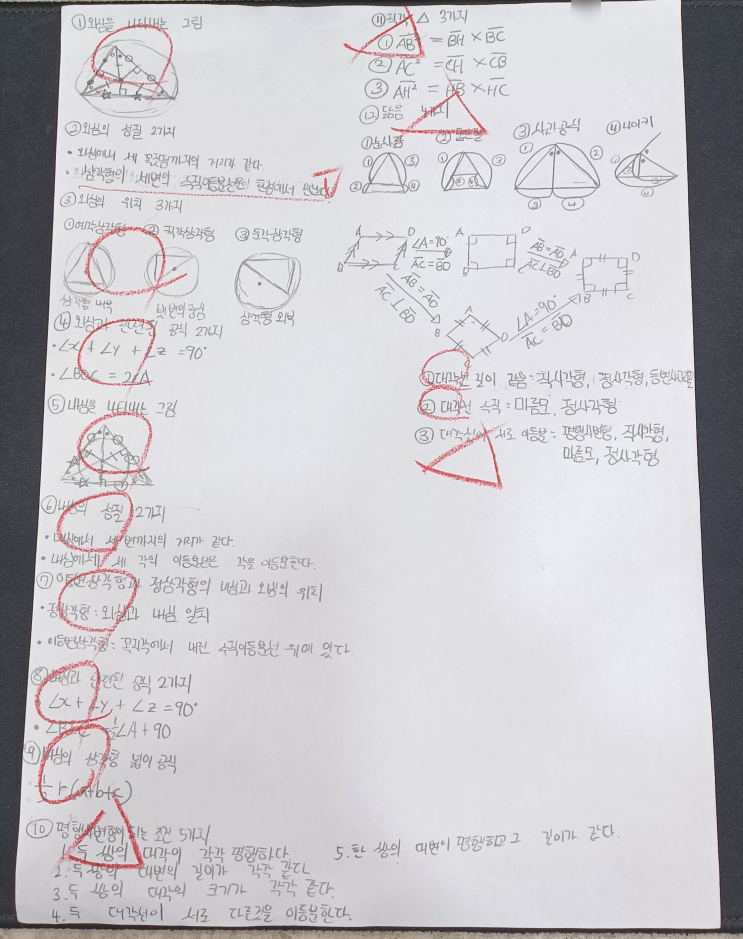 ① 외심을 나타내는 그림
② 외심의 성질 2가지
• 외심에서 세 꼭짓점까지의 거리가 같다.
• 삼각형의 세변의 수직이등분선은 한점에서
③ 외심의 위치 3가지
① 예각삼각형 ② 직각삼각형 ③ 둔각삼각형
삼각형 내부 빗변의 중심 삼각형 외부
④ 외심과 관련된 공식 2가지
• ∠x + ∠y + ∠z = 90°
• ∠BOC = 2∠A
⑤ 내심을 나타내는 그림
⑥ 내심의 성질 2가지
• 내심에서 세변까지의 거리가 같다.
• 내심에서 세 각의 이등분선은 각을 이등분한다.
⑦ 이등변삼각형과 정삼각형의 내심과 외심의 위치
• 정삼각형 : 외심과 내심 일치
• 이등변삼각형 : 꼭지각에서 내린 수직이등분선 위에 있다.
⑧ 내심과 관련된 공식 2가지
∠x + ∠y + ∠z = 90°
• ½∠A + 90
⑨ 내심의 삼각형 넓이 공식
½ r (a+b+c)
⑩ 평행사변형이 되는 조건 5가지
1. 두 쌍의 대각이 각각 평행하다
2. 두 쌍의 대변의 길이가 각각 같다
3. 두 쌍의 대각의 크기가 각각 같다.
4. 두 대각선이 서로 다른것을 이등분한다.
5. 한 쌍의 대변이 평행하고 그 길이가 같다.
⑪ 직각 △ 3가지
① AB² = BH × BC
② AC² = CH × CB
③ AH² = HB × HC
⑫ 닮음 4가지
① ② ③ 사과공식 ④ 나이키
① ② ③ ④
① ② ③ ④
① ② ③ ④
A D B
∠A=90°
AC=BD
A D
AB=AD
AC⊥BD
A D B C
AB=AD
AC⊥BD
A B D C
∠A=90°
AC=BD
① 대각선 길이 같음 : 직사각형, 정사각형,
② 대각선 수직 : 마름모, 정사각형
③ 대각선이 서로 이등분 : 평행사변형, 직사각형,
마름모, 정사각형